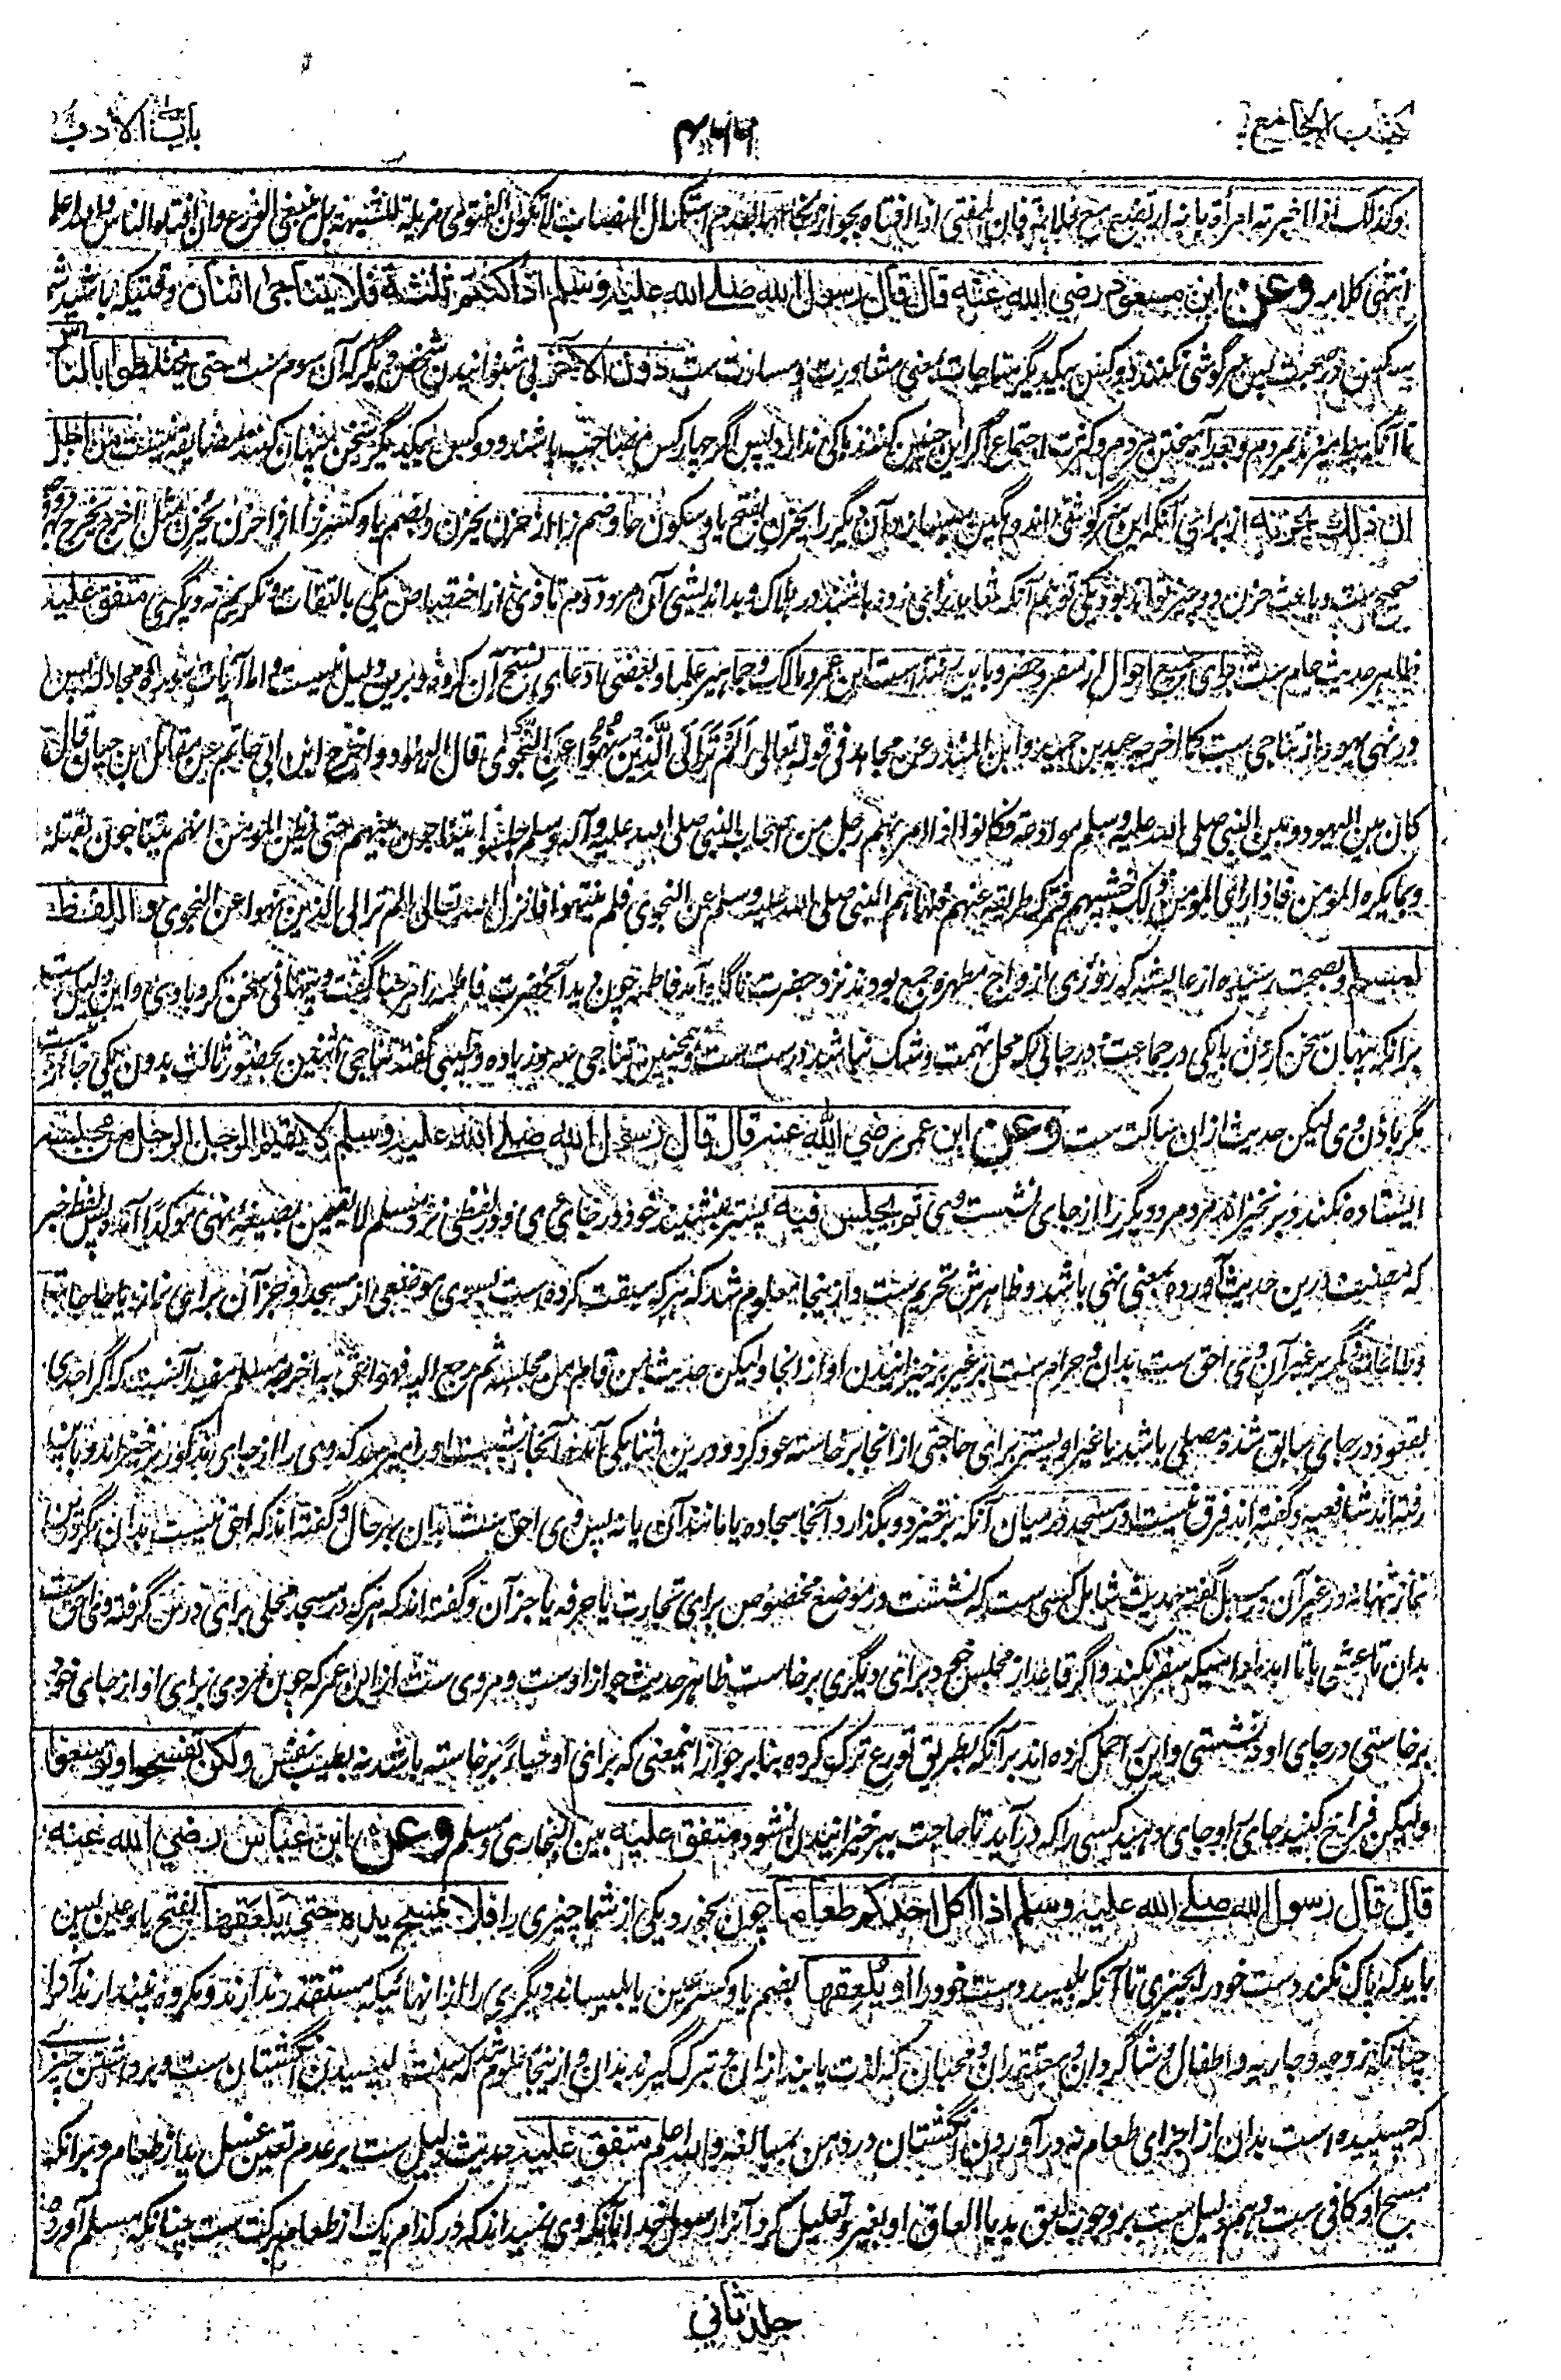 کتاب الجامع
۴۶۶
باب الادب
وکذلک اذا اخبرته امرأة بانه ارتضع مع فلانة فان المفتی اذا افتاه بجواز نکاحها لعدم استکمال النصاب لا تکون الفتوی مزیلة للشبهة بل ینبغی الورع وان افتاه الناس
انتهی کلامه وعن ابن مسعود رضی الله عنه قال قال رسول الله صلے الله علیه وسلم اذا کنتم ثلثة فلا یتناجی اثنان وقتیکه باشید شما
سه کس در صحبت پس سرگوشی نکنند دو کس بیکدیگر تناجات یعنی مشاورت و مسارت ست دون الآخر بی شنوانیدن شخص دیگر که آن سوم ست حتی یختلطوا بالناس
تا آنکه بیامیزند بمردم و بعد آمیختن مردم و کثرت اجتماع اگر این چنین کنند باکی ندارد پس اگر چهار کس مصاحب باشند و دو کس بیکدیگر سخن پنهان کنند مضایقه نیست من اجل
ان ذلک یحزنه از برای آنکه این سرگوشی اندوهگین میسازد آن دیگر را یحزن بفتح یا و سکون حا و ضم زا از حزن یحزن و بضم یا و کسر زا از احزن یحزن مثل اخرج یخرج
صحیح ست و باعث حزن دو چیز تواند بود یکی توهم آنکه شاید برای زود باشند در هلاک و بداندیشی آن مرد دوم تاذی از اختصاص یکی بالتفات و تکریم نه دیگری متفق علیه
ظاهر حدیث عام ست برای جمیع احوال از سفر و حضر و باین رفته است ابن عمر و مالک و جماهیر علما و بعضی ادعای نسخ آن کرده و برین دلیل نیست و اما آیات سوره مجادله پس
در نهی یهود از تناجی ست کما اخرجه عبد بن حمید و ابن المنذر عن مجاهد فی قوله تعالی اَلَمْ تَرَ اِلَی الَّذِیْنَ نُهُوْا عَنِ النَّجْوٰی قال الیهود و اخرج ابن ابی حاتم عن مقاتل بن حیان قال
کان بین الیهود و بین النبی صلی الله علیه وسلم موادعة فکانوا اذا مر بهم رجل من اصحاب النبی صلی الله علیه وآله وسلم جلسوا یتناجون بینهم حتی یظن المؤمن انهم یتناجون بقتله
وبما یکره المؤمن فاذا رای المؤمن ذلک خشیهم فترک طریقه علیهم فنهاهم النبی صلی الله علیه وسلم عن النجوی فلم ینتهوا فانزل الله تعالی الم تر الی الذین نهوا عن النجوی واللفظ
لمسلم و بصحت رسیده از عایشه که روزی ازواج مطهره جمع بودند نزد حضرت ناگاه آمد فاطمه چون دید آنحضرت فاطمه را مرحبا گفت و پنهانی سخن کرد با وی و این دلیل ست
بر آنکه پنهان سخن کردن با یکی در جماعت در جائی که محل تهمت و شک نباشد درست ست و همچنین تناجی سه و زیاده و طیبی گفته تناجی اثنین بحضور ثالث بدون یکی جائز نیست
مگر باذن وی لیکن حدیث ازان ساکت ست وعن ابن عمر رضی الله عنه قال قال رسول الله صلے الله علیه وسلم لا یقیم الرجل الرجل من مجلسه
ایستاده نکند و برنخیزاند مردم مرد دیگر را از جای نشست وی ثم یجلس فیه پستر بنشیند خود در جای وی و در لفظی نزد مسلم لا یقیمن بصیغه نهی موکد آمده پس لفظ خبر
که مصنف درین حدیث آورده بمعنی نهی باشد و ظاهرش تحریم ست و از ینجا معلوم شد که هر که سبقت کرده است بسوی موضعی از مسجد و جز آن برای نماز یا حاجات
و طاعات دیگر بر غیر آن وی احق ست بدان و حرام ست بر غیر برخیزانیدن او از آنجا ولیکن حدیث من قام من مجلسه ثم رجع الیه فهو احق به اخرجه مسلم مفید آنست که اگر احدی
بقعود در جای سابق شد و مصلی باشد یا غیر او پستر برای حاجتی از آنجا برخاسته عود کرد و درین اثنا یکی آمده آنجا نشسته او را میرسد که وی را از جای مذکور برخیزاند و باین
رفته اند شافعیه و گفته اند فرق نیست در مسجد در میان آنکه برخیزد و بگذارد آنجا سجاده یا مانند آن یا نه پس وی احق ست بدان بهر حال و گفته اند که احق نیست بدان مگر درین
نماز تنها نه در غیر آن و در سبل گفته حدیث شامل کسی ست که نشست در موضع مخصوص برای تجارت یا حرفه یا جز آن و گفته اند که هر که در مسجد محلی برای درس گرفته وی احق ست
بدان تا عشی یا تا ابد مادامیکه سفر نکند و اگر قاعد از مجلس خود برای دیگری برخاست ظاهر حدیث جواز اوست و مروی ست از ابن عمر که چون مردی برای او از جای خود
برخاستی در جای او نه نشستی و این را حمل کرده اند بر آنکه بطریق تورع ترک کرده بنا بر جواز اینمعنی که برای او حیاءً برخاسته باشد نه بطیب نفس ولکن تفسحوا وتوسعوا
ولیکن فراخ کنید جای را و جای دهید کسی را که در آید تا حاجت ببرخیزانیدن نشود متفق علیه بین البخاری و مسلم وعن ابن عباس رضی الله عنه
قال قال رسول الله صلے الله علیه وسلم اذا اکل احدکم طعاما چون بخورد یکی از شما چیزی را فلا یمسح یده حتی یلعقها بفتح یا و عین پس
باید که پاک نکند دست خود را بچیزی تا آنکه بلیسد دست خود را او یُلعقها بضم یا و کسر عین یا بلیساند دیگری را از انهائیکه مستقذر ندارند و مکروه نپندارند آنرا
چنانکه زوجه و جاریه و اطفال و شاگردان و معتقدان و محبان که لذت یابند ازان و تبرک گیرند بدان و از ینجا معلوم شد که سنت لیسیدن انگشتان ست و برداشتن چیزے
که چسپیده است بدان از اجزای طعام نه در آوردن انگشتان در دهن بمبالغه والله اعلم متفق علیه حدیث دلیل ست بر عدم تعین غسل ید از طعام و بر آنکه
مسح او کافی ست و هم دلیل ست بر وجوب لعق ید یا العاق او بغیر و تعلیل کرد آنرا رسول خدا بآنکه وی نمیداند که در کدام یک از طعام برکت ست چنانکه مسلم آورده
جلد ثانی